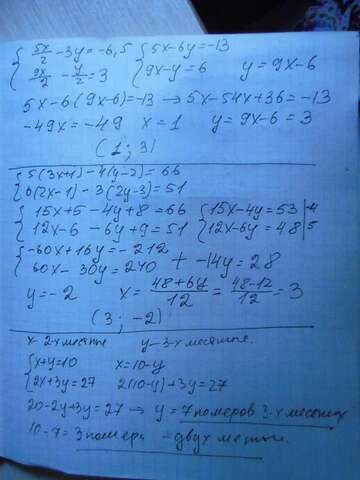 { 5x/2 - 3y = -6,5 { 5x - 6y = -13
{ 9x/2 - y/2 = 3 { 9x - y = 6 y = 9x - 6
5x - 6(9x - 6) = -13 → 5x - 54x + 36 = -13
-49x = -49 x = 1 y = 9x - 6 = 3
(1; 3)
{ 5(3x+1) - 4(y-2) = 66
{ 6(2x-1) - 3(2y-3) = 51
{ 15x + 5 - 4y + 8 = 66 { 15x - 4y = 53 | -4
{ 12x - 6 - 6y + 9 = 51 { 12x - 6y = 48 | 5
{ -60x + 16y = -212
{ 60x - 30y = 240 + -14y = 28
y = -2 x = 48+6y/12 = 48-12/12 = 3
(3; -2)
x - 2-х местные y - 3-х местные.
{ x + y = 10 x = 10 - y
{ 2x + 3y = 27 2(10-y) + 3y = 27
20 - 2y + 3y = 27 → y = 7 номеров 3-х местных
10 - 7 = 3 номера - двух местн.